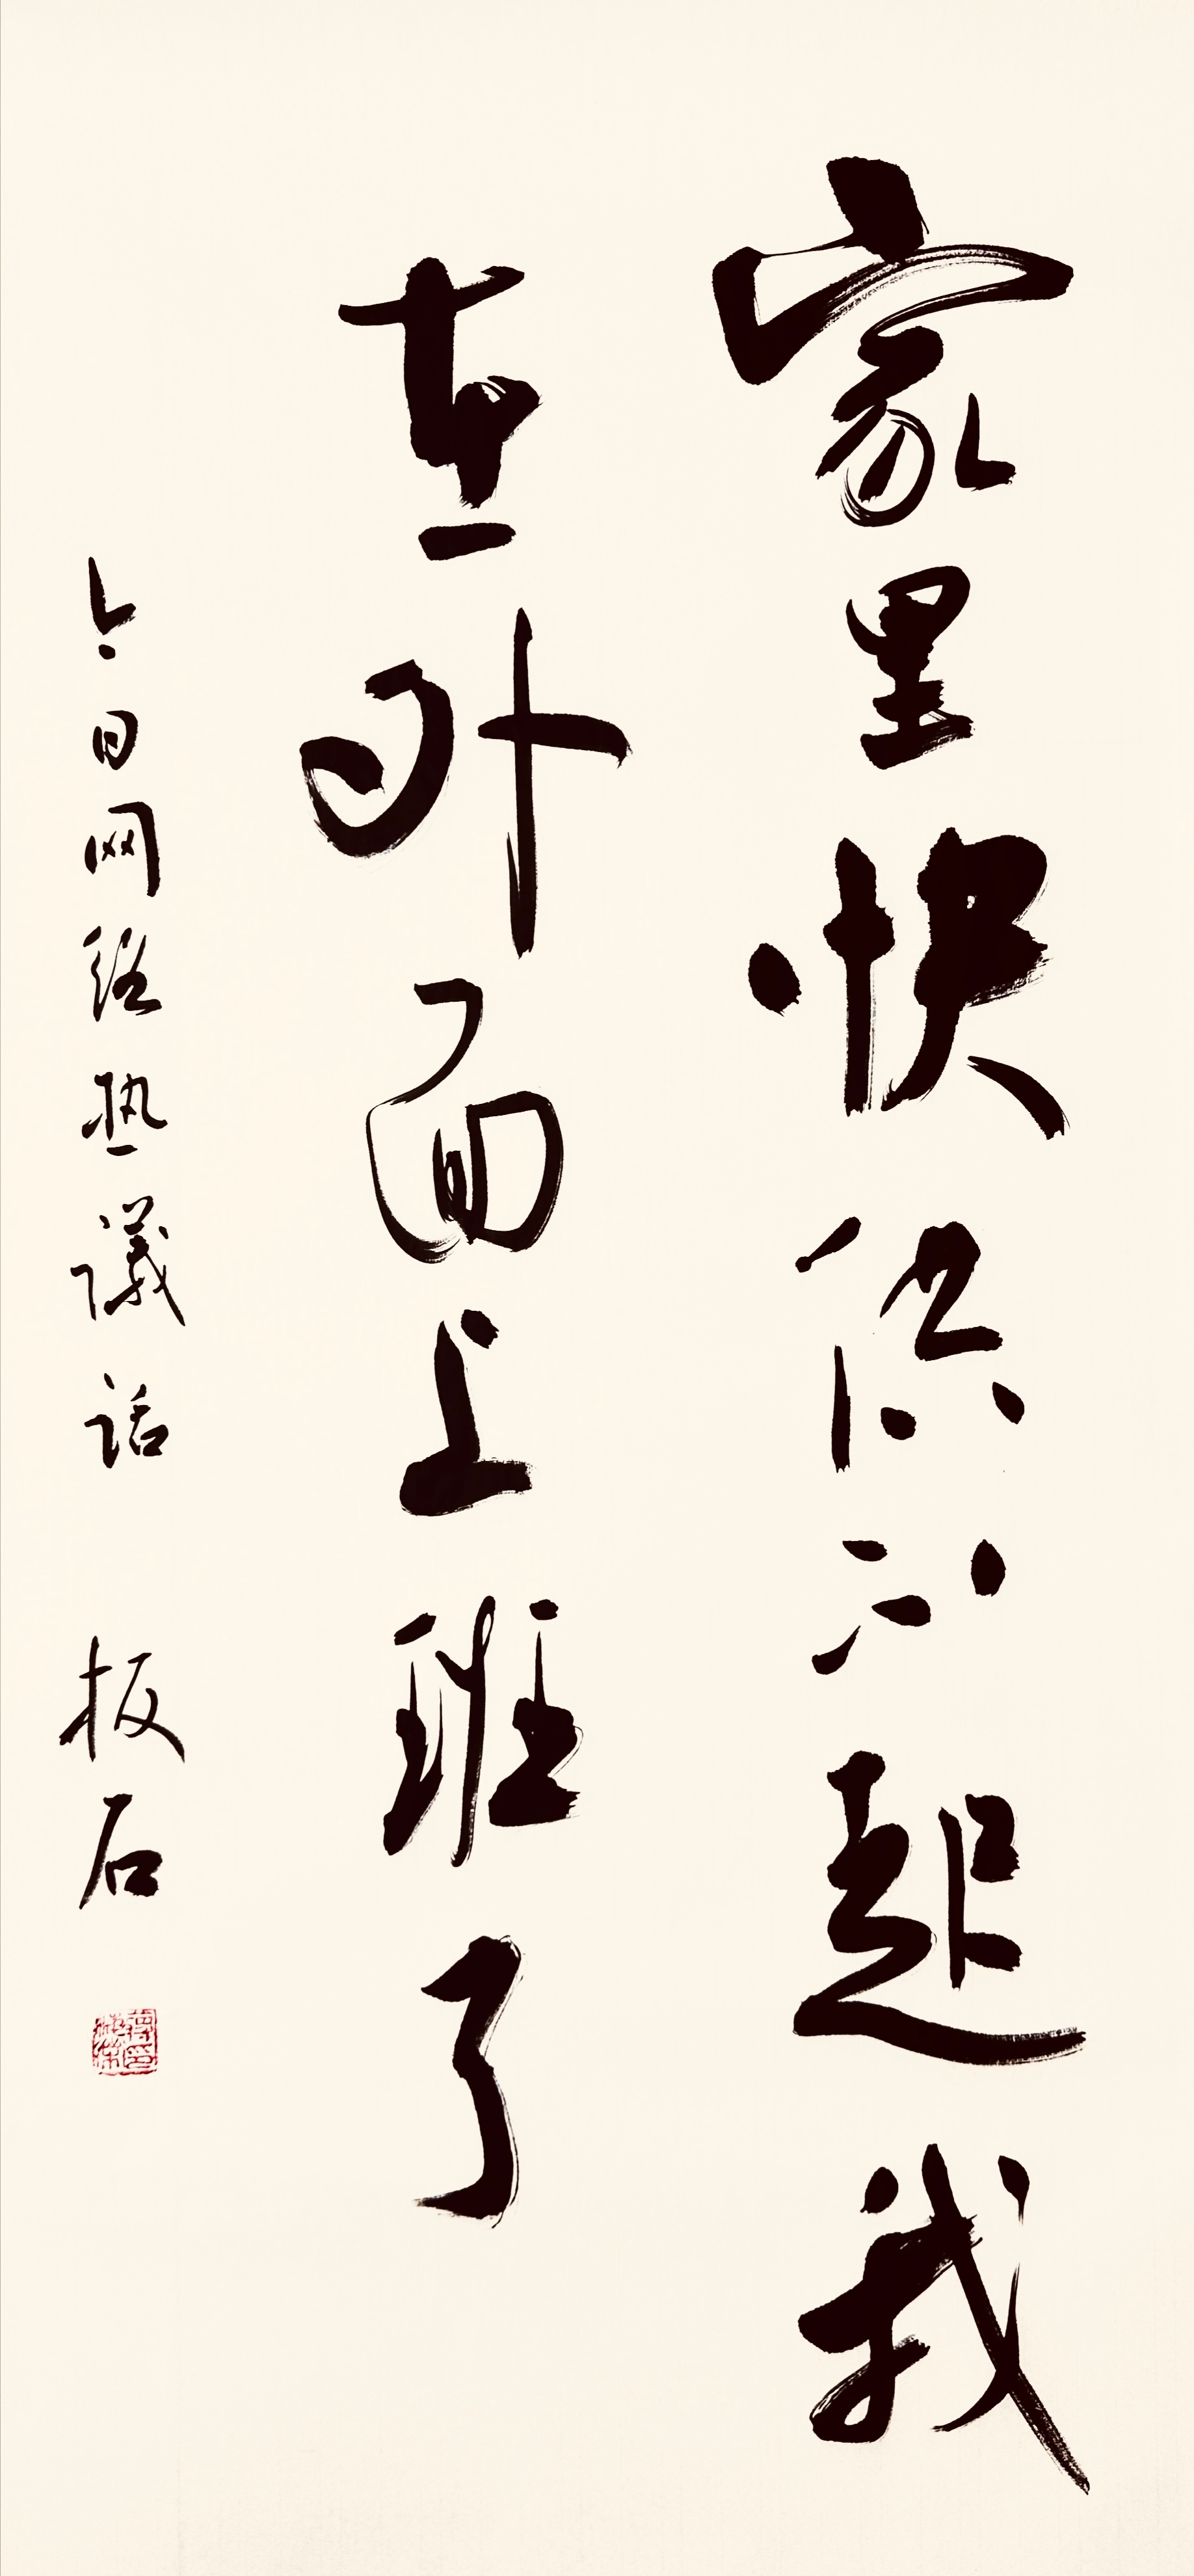 家里快供不起我
在外面上班了
今日网络热议话
板石